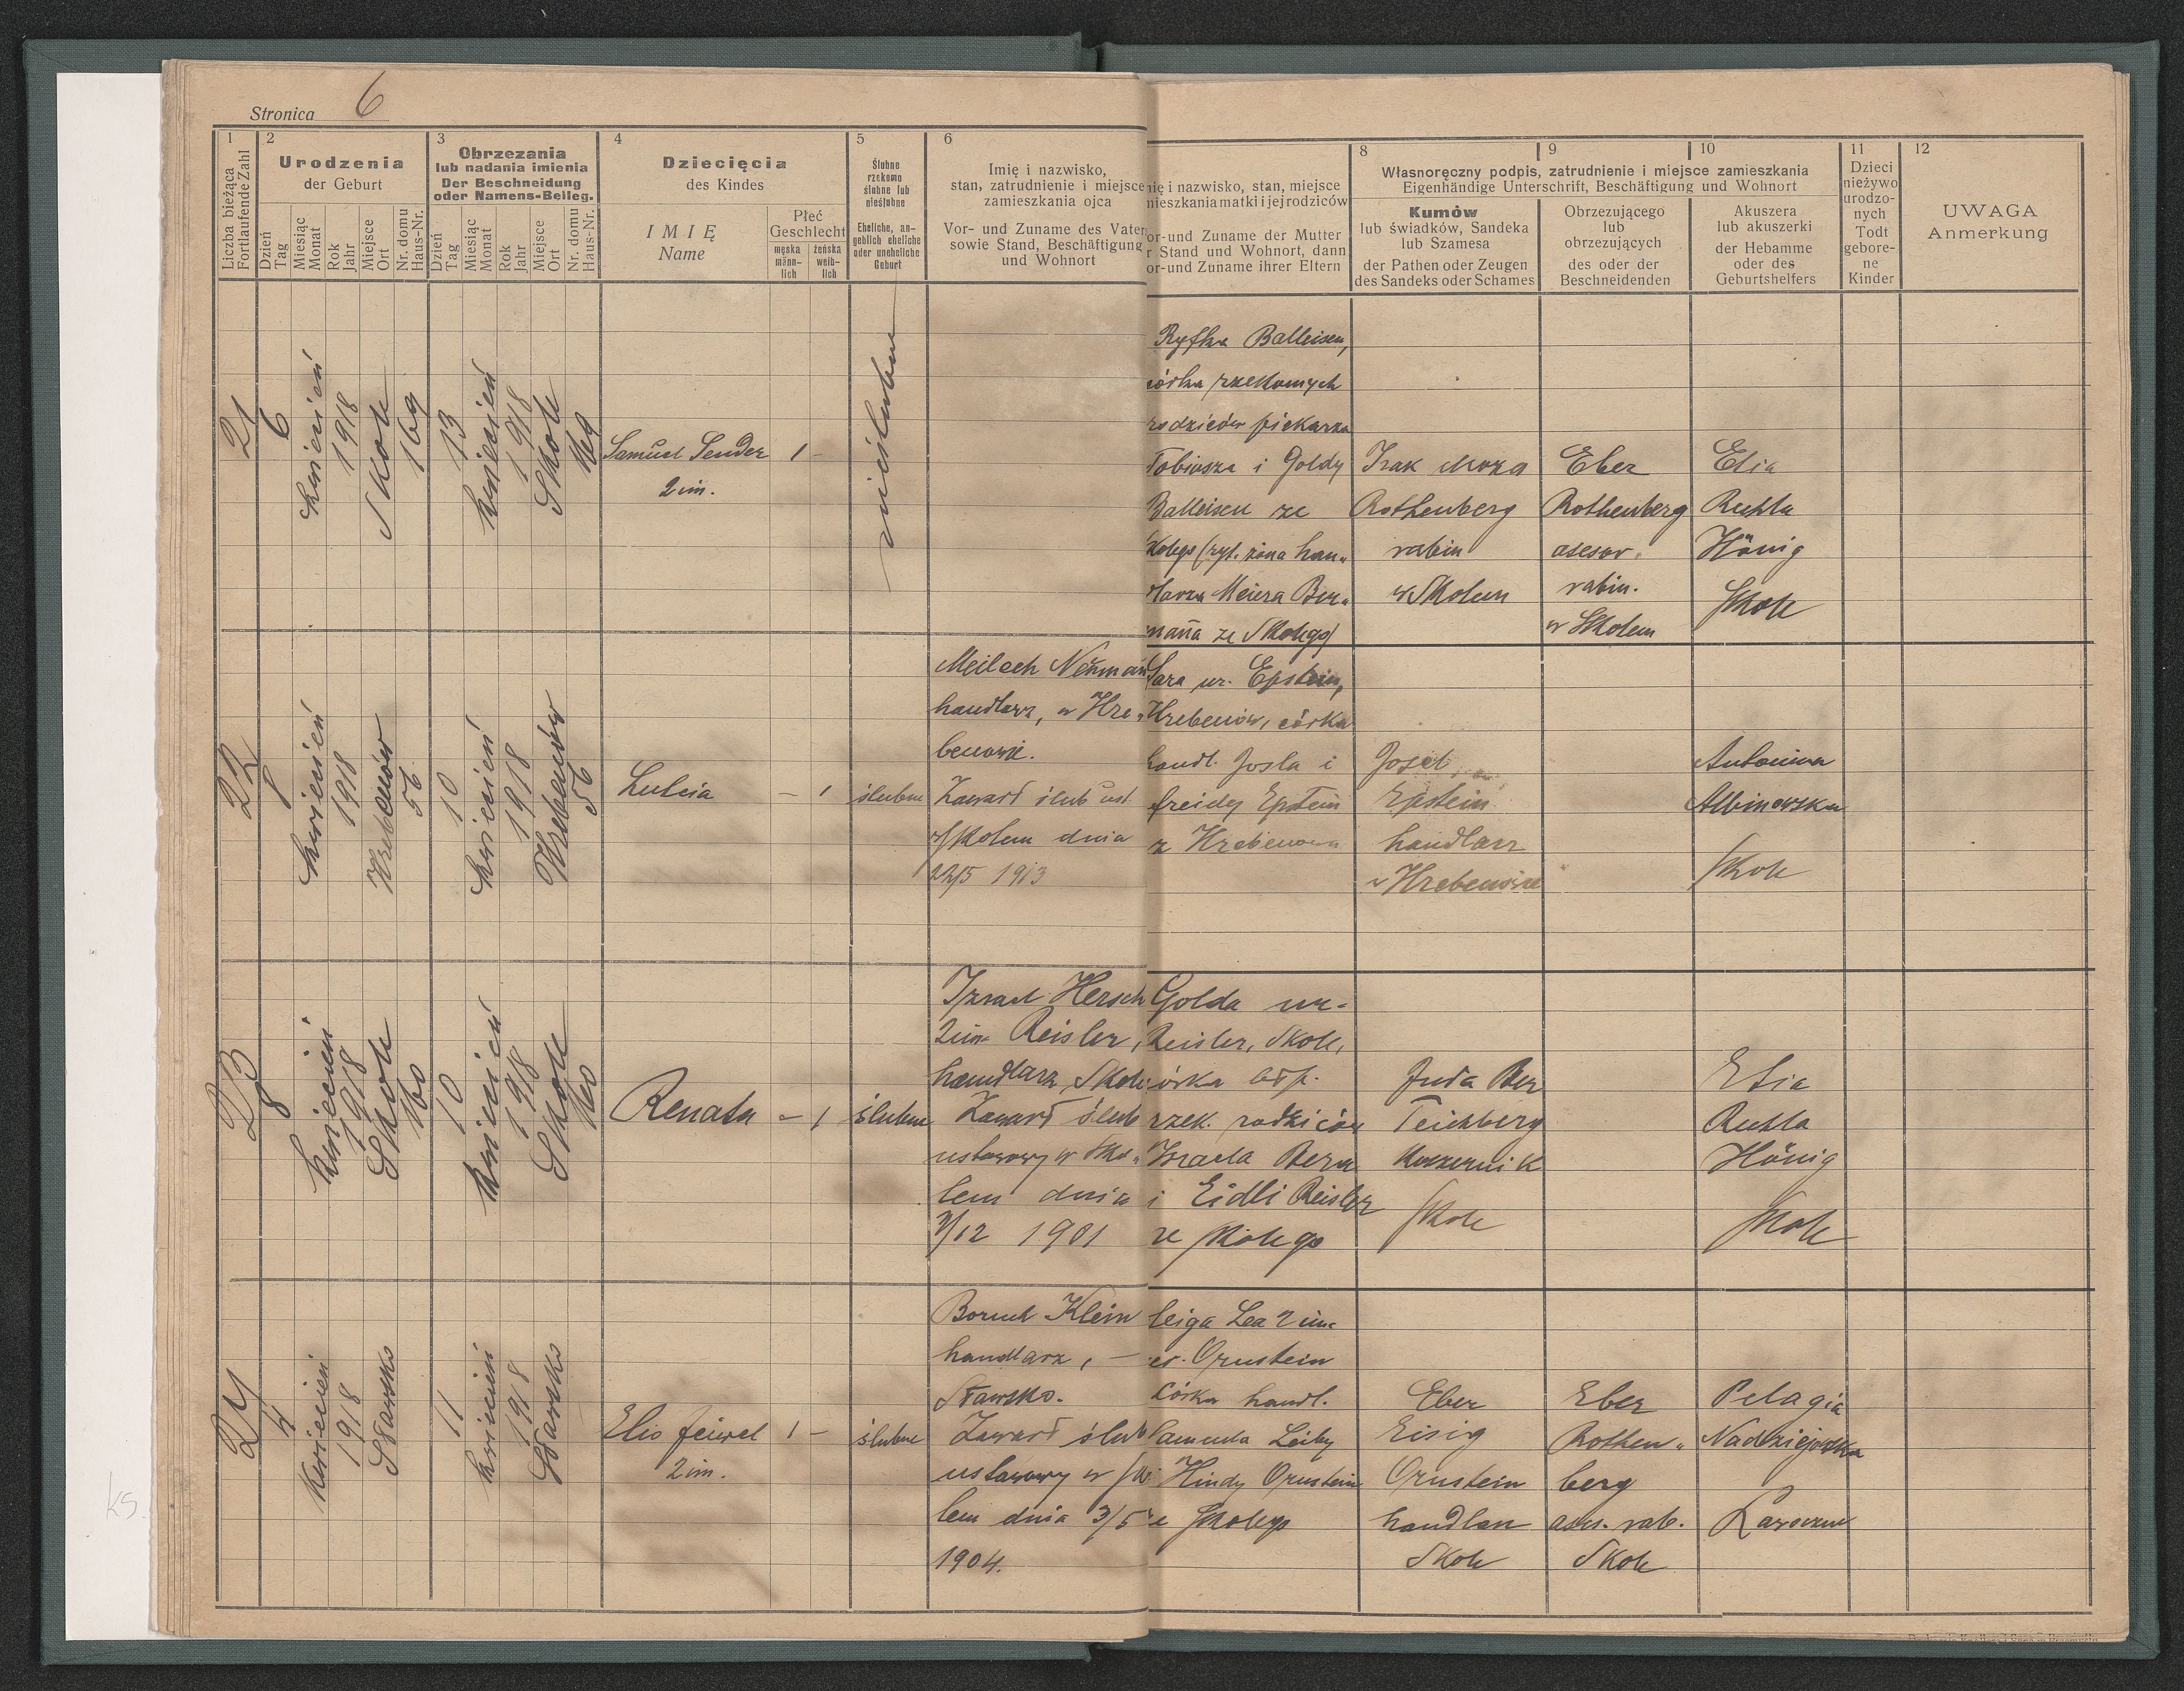 Stronica 6
1
Liczba bieżąca
Fortlaufende Zahl
2
Urodzenia
der Geburt
Dzień
Tag
Miesiąc
Monat
Rok
Jahr
Miejsce
Ort
Nr. domu
Haus-Nr.
3
Obrzezania
lub nadania imienia
Der Beschneidung
oder Namens-Beileg.
Dzień
Tag
Miesiąc
Monat
Rok
Jahr
Miejsce
Ort
Nr. domu
Haus-Nr.
4
Dziecięcia
des Kindes
IMIĘ
Name
Płeć
Geschlecht
męska
männ-
lich
żeńska
weib-
lich
5
Ślubne
rzekomo
ślubne lub
nieślubne
Eheliche, an-
geblich eheliche
oder uneheliche
Geburt
6
Imię i nazwisko,
stan, zatrudnienie i miejsce
zamieszkania ojca
Vor- und Zuname des Vater
sowie Stand, Beschäftigung
und Wohnort
nię i nazwisko, stan, miejsce
nieszkania matki i jej rodziców
or-und Zuname der Mutter
r Stand und Wohnort, dann
or-und Zuname ihrer Eltern
8
9
10
Własnoręczny podpis, zatrudnienie i miejsce zamieszkania
Eigenhändige Unterschrift, Beschäftigung und Wohnort
Kumów
lub świadków, Sandeka
lub Szamesa
der Pathen oder Zeugen
des Sandeks oder Schames
Obrzezującego
lub
obrzezujących
des oder der
Beschneidenden
Akuszera
lub akuszerki
der Hebamme
oder des
Geburtshelfers
11
Dzieci
nieżywo
urodzo-
nych
Todt
gebore-
ne
Kinder
12
UWAGA
Anmerkung
21
6
kwiecień
1918
Skole
169
13
kwiecień
1918
Skole
169
Samuel Sender
2 im.
1 -
nieślubne
Ryfka Balleisen,
córka rzekomych
rodziców piekarza
Tobiasza i Goldy
Balleisen ze
Skolego (ryt. żona han„
dlarza Meiera Ber„
mana ze Skolego)
Izak
Rothenberg
rabin
w Skolem
Eber
Rothenberg
asesor
rabin.
w Skolem
Elia
Ruchla
Hönig
Skole
22
8
kwiecień
1918
Hrebenów
56
10
kwiecień
1918
Hrebenów
56
Lulcia
- 1
ślubne
Meilech Neuman
handlarz, w Hre„
benowie.
Zawarł ślub ust.
w Skolem dnia
22/5 1913
Sara ur. Epstein,
Hrebenów, córka
handl. Josla i
freidy Epstein
z Hrebenowa
Josel
Epstein
handlarz
w Hrebenowie
Antonina
Albinowska
Skole
23
8
kwiecień
1918
Skole
160
10
kwiecień
1918
Skole
160
Renata
- 1
ślubne
Izrael Hersch
2 im. Reisler,
handlarz, Skole
Zawarł ślub
ustawowy w Sko„
lem dnia
3/12 1901
Golda ur.
Reisler, Skole,
órka
rzek. rodziców
Izraela Bera
i Eidli Reisler
ze Skolego
Juda Ber
Teichberg
Skole
Elia
Ruchla
Hönig
Skole
24
4
kwiecień
1918
Sławsko
11
kwiecień
1918
Sławsko
Elio feiwel
2 im.
1 -
ślubne
Boruch Klein
handlarz, —
Sławsko.
Zawarł ślub
ustawowy w Sko
lem dnia 3/5
1904.
feiga Lea 2 im.
ur. Ornstein
córka handl.
Samuela Leiby
Hindy Ornstein
e Skolego
Eber
Eisig
Ornstein
handlarz
Skole
Eber
Rothen„
berg
ases. rab.
Skole
Pelagia
Nadziejowska
Ławoczne
ks.